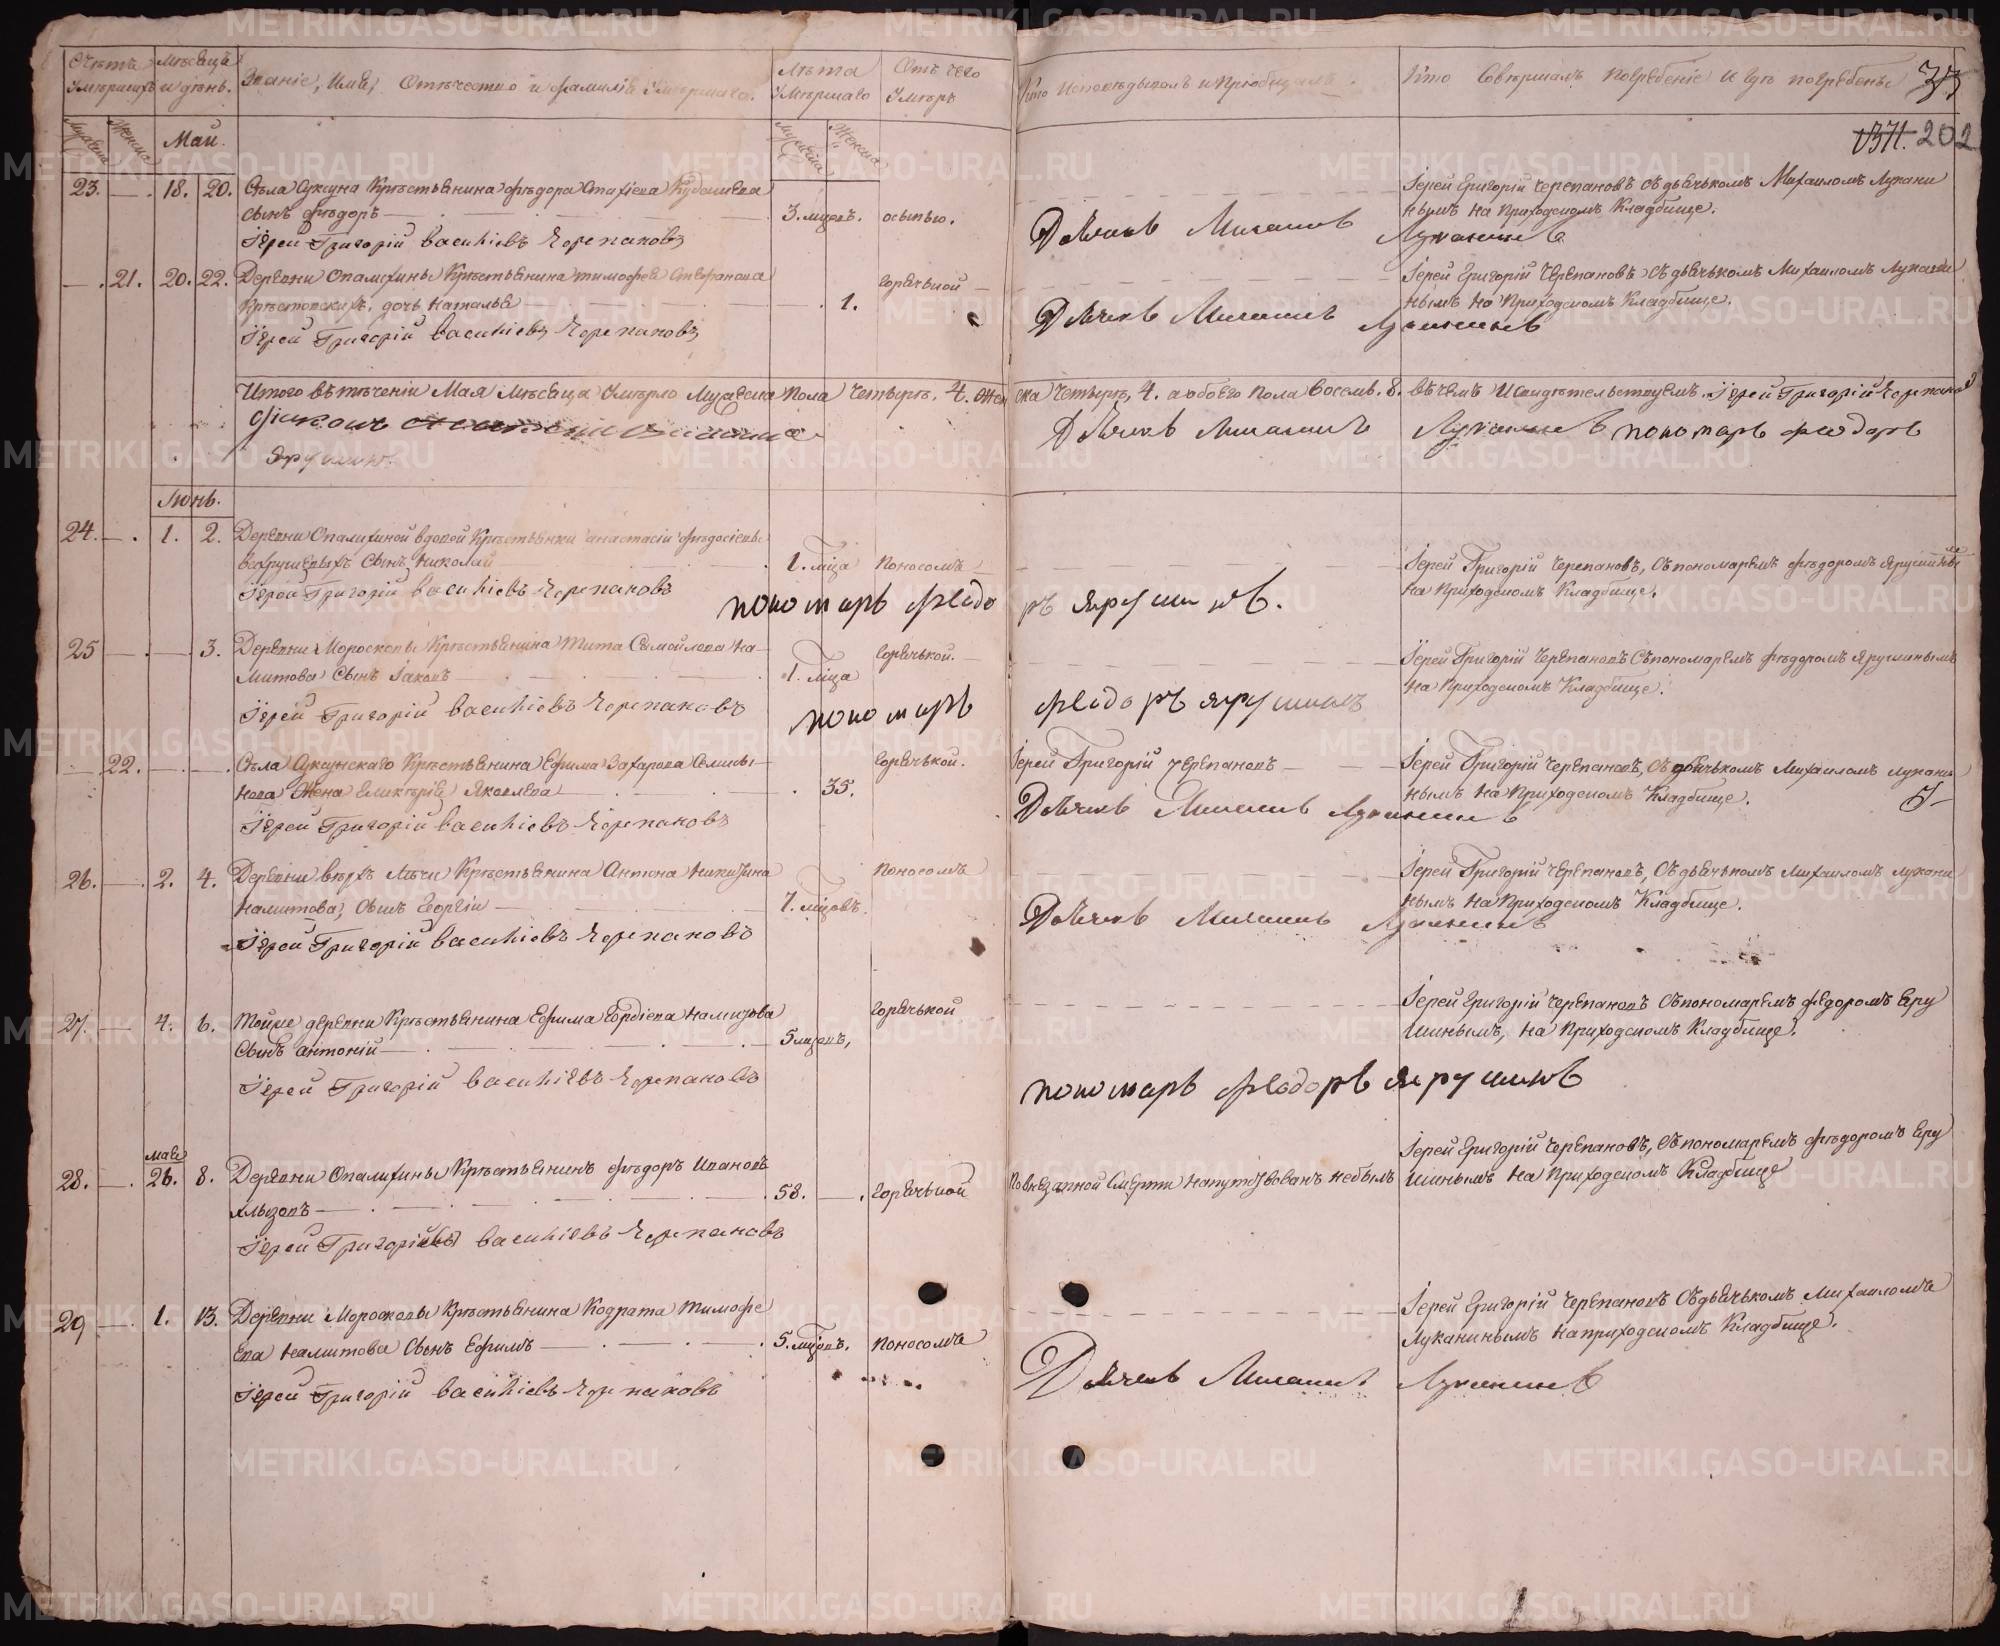 Счетъ Умершихъ
Мѣсяцъ и день.
Званіе, Имя, Отчество и фамилія Умершаго.
Лѣта Умершаго
Отъ чего Умеръ
Кто Исповѣдывалъ и Пріобщалъ.
Кто Совершалъ погребеніе и гдѣ погребены
Мужеска
Женска
Май.
Мужеска
Женска
371. 202
23. — 18. 20. Села Аркуна Крестьянина Федора
сынъ Федоръ
3. мцевъ. осыпью.
Іерей Григорій Васильевъ Черепановъ
Дьячекъ Михаилъ Луканинъ
Іерей Григорій Черепановъ съ дьячькомъ Михаиломъ Лукани
нымъ на Приходскомъ Кладбище.
— 21. 20. 22. Деревни Опалихины Крестьянина Тимофея Стефанова
Крестовскихъ дочь Наталья
1. горячькой
Іерей Григорій Васильевъ Черепановъ
Дьячекъ Михаилъ Луканинъ
Іерей Григорій Черепановъ съ дьячькомъ Михаиломъ Лукани
нымъ на Приходскомъ Кладбище.
Итого въ теченіи Мая Мѣсяца Умерло Мужеска Пола Четыре, 4. Женска Четыре, 4. а обоего Пола восемь. 8. въ чемъ и Свидетельствуемъ. Іерей Григорій Черепановъ
Дьячекъ Михаилъ Луканинъ пономарь Федоръ
Ярушинъ.
Іюнь.
24. — 1. 2. Деревни Опалихиной вдовой Крестьянки Анастасіи Федосіевы
Вахрушевыхъ Сынъ Николай
1. мца поносомъ
Іерей Григорій Васильевъ Черепановъ
пономарь Федоръ Ярушинъ.
Іерей Григорій Черепановъ, съ пономаремъ Федоромъ Ярушинымъ
на Приходскомъ Кладбище.
25 — — 3. Деревни Моросковы Крестьянина Тита Самойлова На-
митова Сынъ Іаковъ
1. мца горячькой.
Іерей Григорій Васильевъ Черепановъ
пономарь Федоръ Ярушинъ
Іерей Григорій Черепановъ съ пономаремъ Федоромъ Ярушинымъ
на Приходскомъ Кладбище.
— 22. — — Села Аркунскаго Крестьянина Ефима Захарова Селивы-
нова Жена Гликерія Яковлева
35. горячькой.
Іерей Григорій Васильевъ Черепановъ
Іерей Григорій Черепановъ
Дьячекъ Михаилъ Луканинъ
Іерей Григорій Черепановъ, съ дьячькомъ Михаиломъ Лукани
нымъ на Приходскомъ Кладбище.
26. — 2. 4. Деревни Верхъ Крестьянина Антона Никитина
Намитова, Сынъ Георгіи
7. мцовъ. поносомъ
Іерей Григорій Васильевъ Черепановъ
Дьячекъ Михаилъ Луканинъ
Іерей Григорій Черепановъ, съ дьячькомъ Михаиломъ Лукани
нымъ на Приходскомъ Кладбище.
27. — 4. 6. Тойже деревни Крестьянина Ефима Гордіева Намитова
Сынъ Антоній
5 мцовъ, горячькой
Іерей Григорій Васильевъ Черепановъ
пономарь Федоръ Ярушинъ
Іерей Григорій Черепановъ съ пономаремъ Федоромъ Яру
шинымъ, на Приходскомъ Кладбище.
28. — мая 26. 8. Деревни Опалихины Крестьянинъ Федоръ Ивановъ
Хлызовъ
58. — горячькой
По внезапной Смерти напутствованъ не былъ
Іерей Григорій Васильевъ Черепановъ
Іерей Григорій Черепановъ, съ пономаремъ Федоромъ Яру
шинымъ на Приходскомъ Кладбище
29 — 1. 13. Деревни Моросковы Крестьянина Кодрата Тимофе
ева Намитова Сынъ Ефимъ
5. мцовъ. поносомъ
Іерей Григорій Васильевъ Черепановъ
Дьячекъ Михаилъ Луканинъ
Іерей Григорій Черепановъ съ дьячькомъ Михаиломъ
Луканинымъ на приходскомъ Кладбище.
METRIKI.GASO-URAL.RU